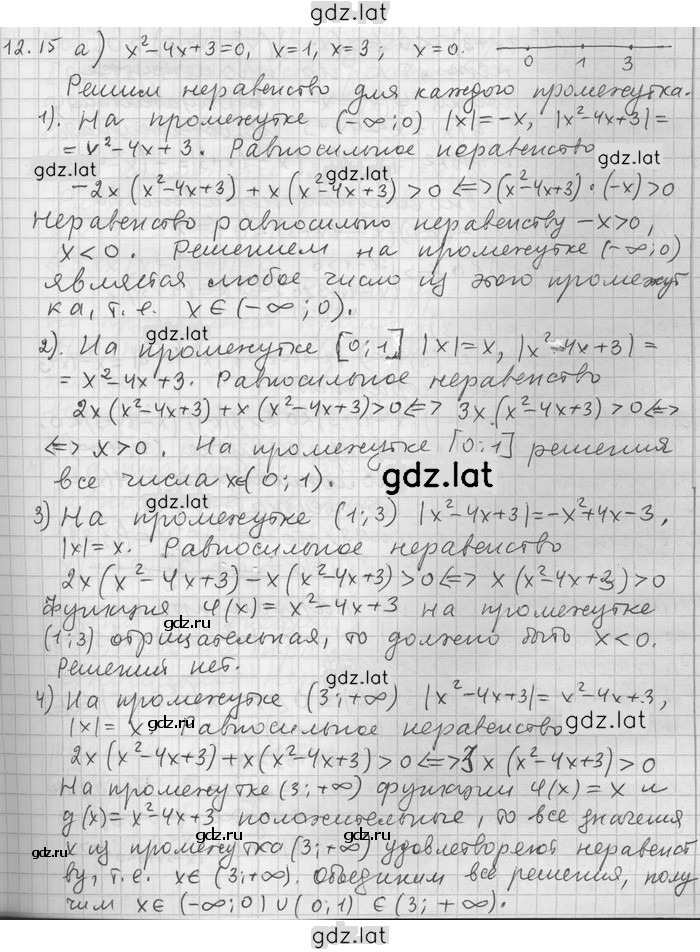 gdz.lat
12.15 а) x²-4x+3=0, x=1, x=3; x=0. 0 1 3
Решим неравенство для каждого промежутка.
gdz.lat
1). На промежутке (-∞;0) |x|=-x, |x²-4x+3|=
= x²-4x+3. Равносильное неравенство
gdz.lat gdz.lat
-2x(x²-4x+3)+x(x²-4x+3)>0 <=> (x²-4x+3)·(-x)>0
Неравенство равносильно неравенству -x>0,
x<0. Решением на промежутке (-∞;0)
является любое число из этого промежут
ка, т.е. x∈(-∞;0).
gdz.lat
2). На промежутке [0;1] |x|=x, |x²-4x+3|=
= x²-4x+3. Равносильное неравенство
2x(x²-4x+3)+x(x²-4x+3)>0 <=> 3x(x²-4x+3)>0 <=>
<=> x>0. На промежутке [0;1] решения
все числа x∈(0;1).
gdz.lat
gdz.lat
3) На промежутке (1;3) |x²-4x+3|=-x²+4x-3,
|x|=x. Равносильное неравенство
2x(x²-4x+3)-x(x²-4x+3)>0 <=> x(x²-4x+3)>0
gdz.ru
функция φ(x)=x²-4x+3 на промежутке
(1;3) отрицательная, то должно быть x<0.
Решений нет.
gdz.lat
4) На промежутке (3;+∞) |x²-4x+3|=x²-4x+3,
gdz.ru gdz.lat
|x|=x. Равносильное неравенство
2x(x²-4x+3)+x(x²-4x+3)>0 <=> 3x(x²-4x+3)>0
На промежутке (3;+∞) функции φ(x)=x и
g(x)=x²-4x+3 положительные, то все значения
gdz.ru
x из промежутка (3;+∞) удовлетворяют неравенст
gdz.ru gdz.lat
ву, т.е. x∈(3;+∞). Объединим все решения, полу
чим x∈(-∞;0)∪(0;1)∈(3;+∞).
gdz.lat